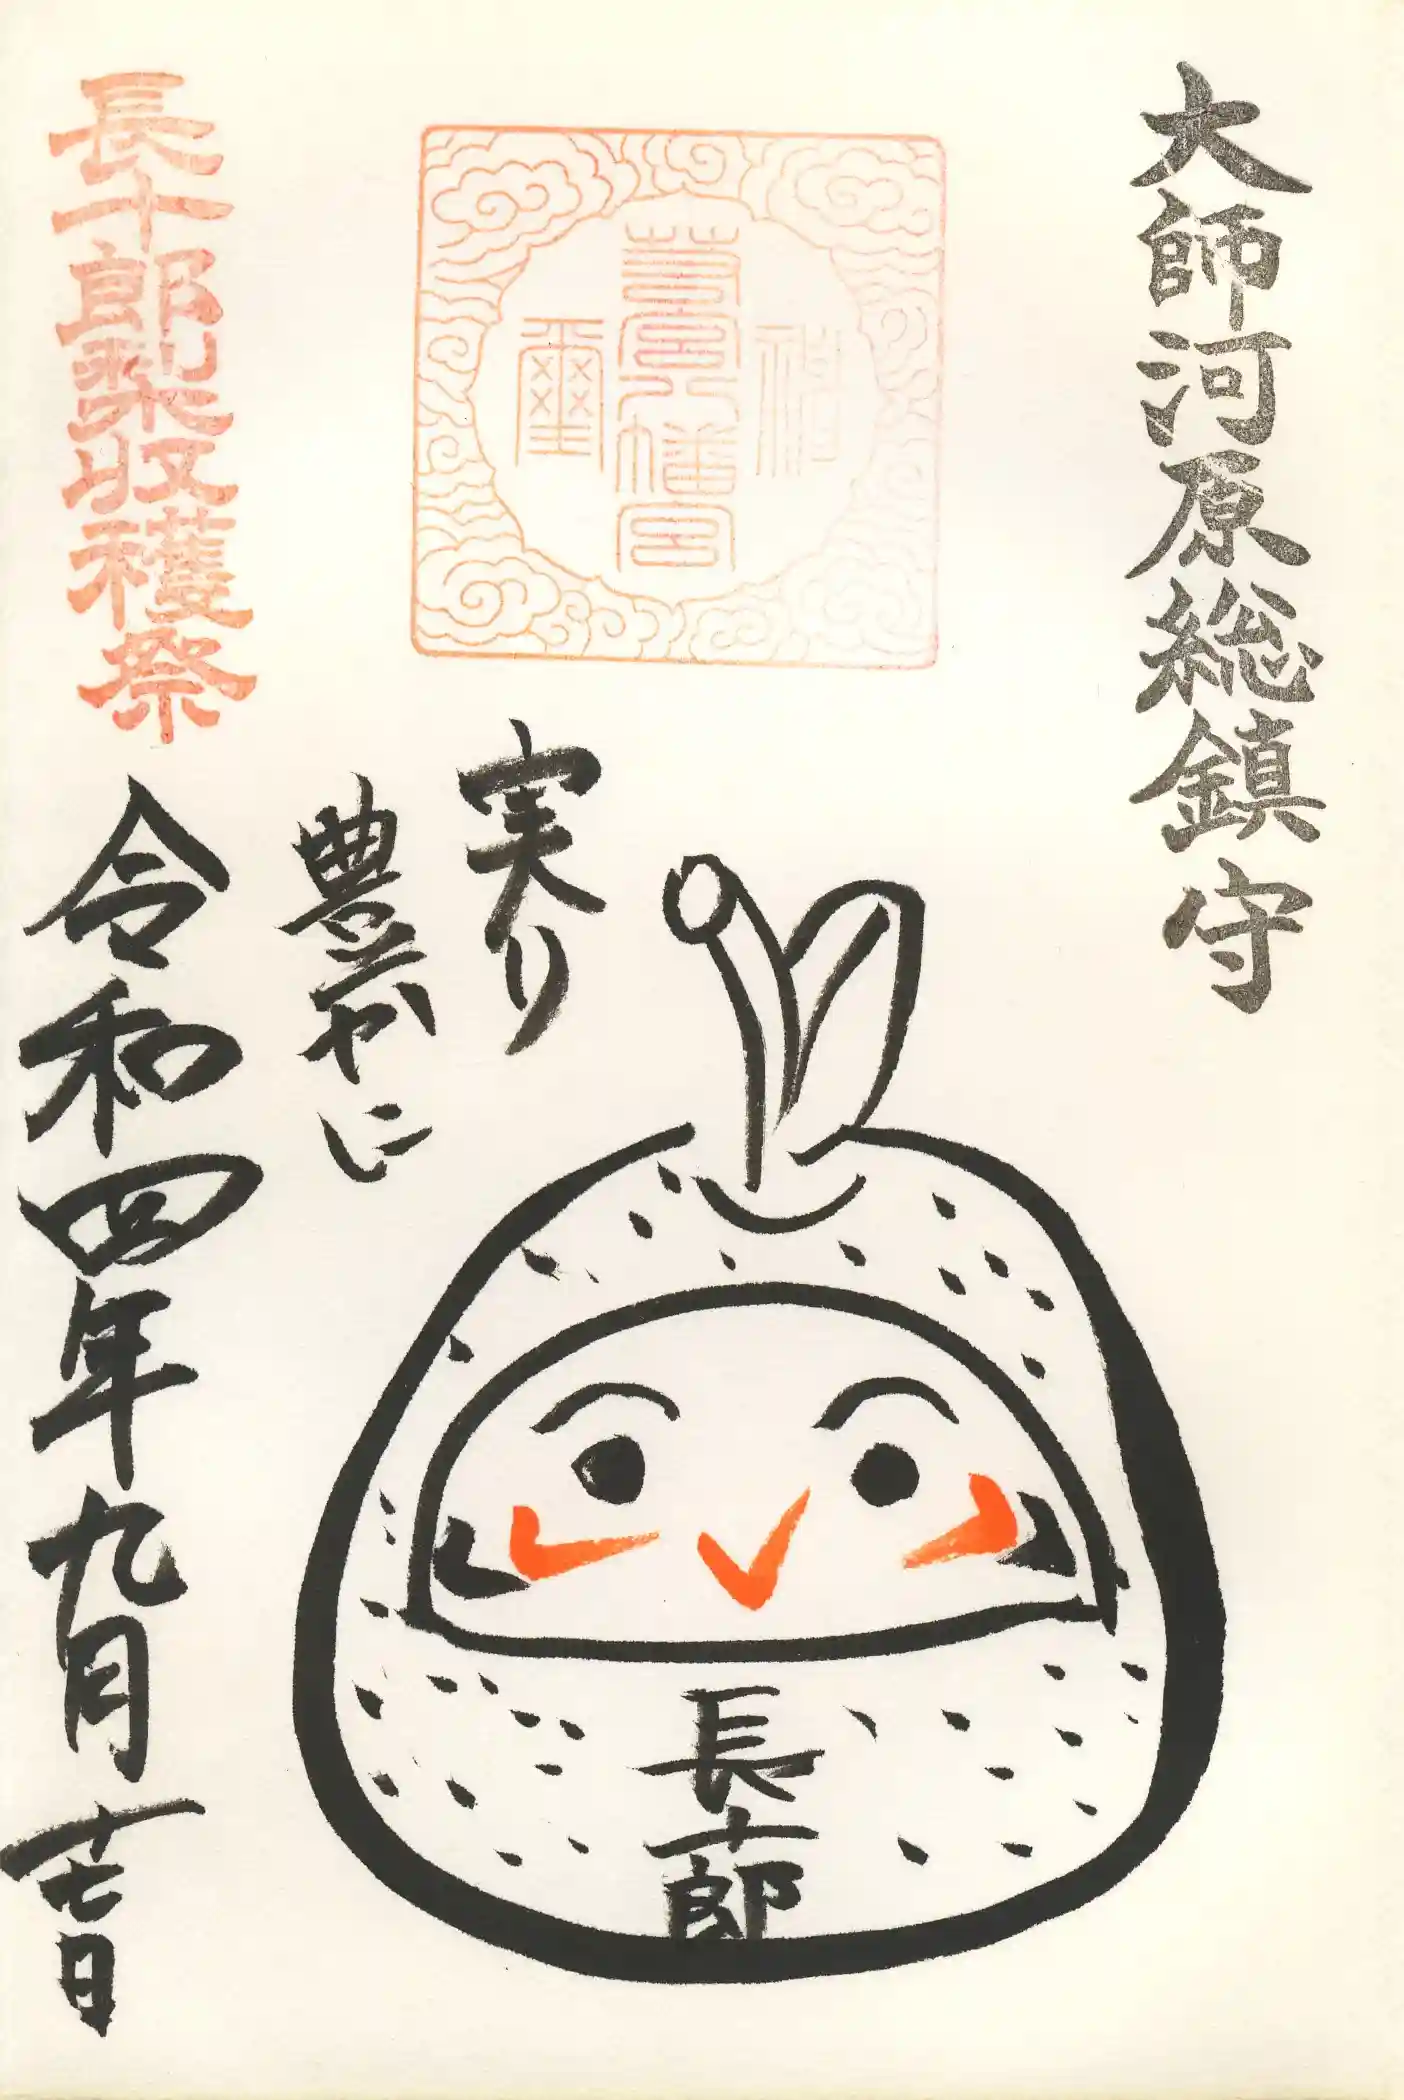 大師河原総鎮守
若宮八幡宮
神
璽
実り
豊かに
長十郎
長十郎梨収穫祭
令和四年九月十七日